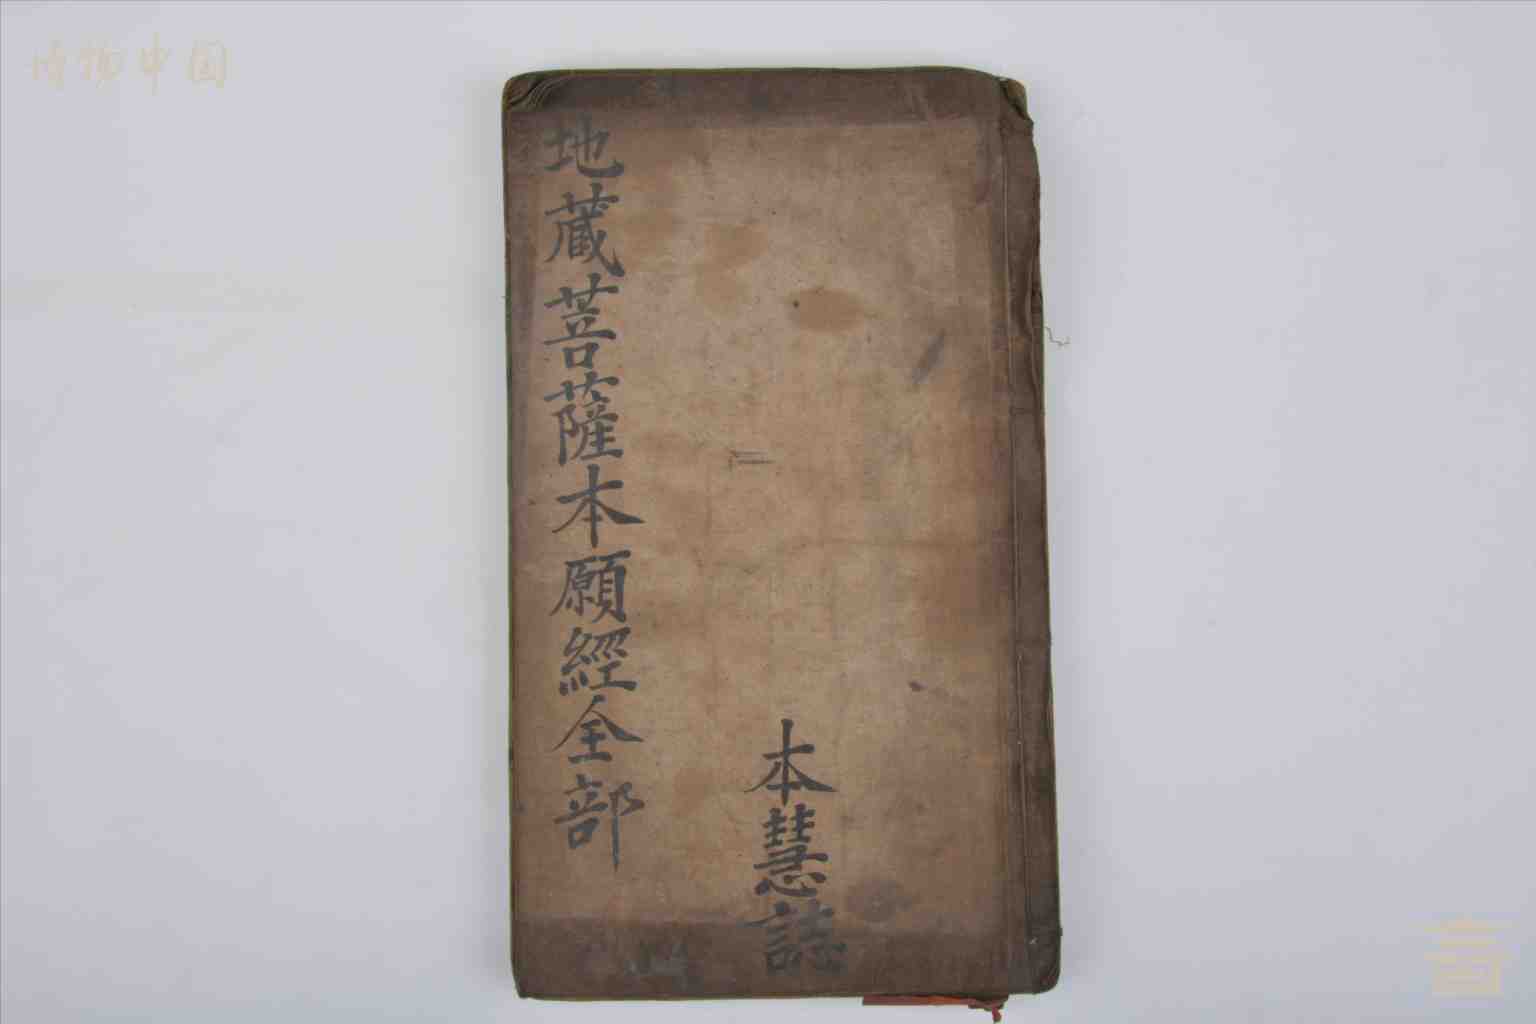 博物中国
地藏菩薩本願經全部
本慧誌